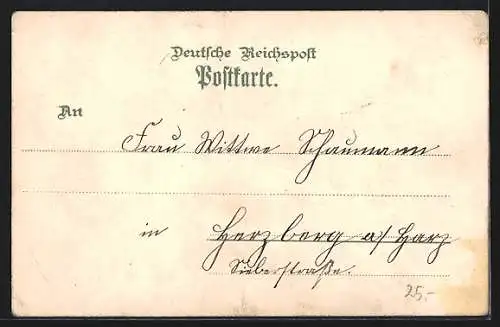 Deutsche Reichspost
Postkarte.
An
Frau Wittwe Schaumann
in Herzberg a/Harz
Sieberstraße.
25.-